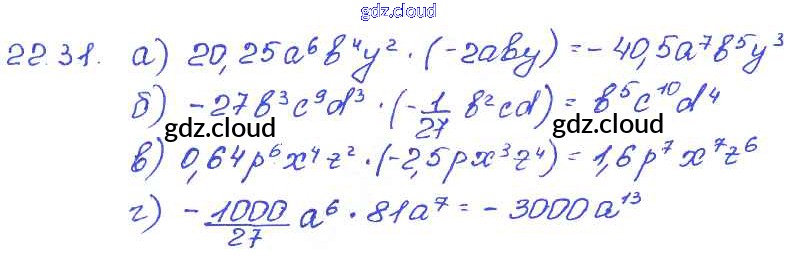 gdz.cloud
22.31. а) 20,25a⁶b⁴y² · (-2aby) = -40,5a⁷b⁵y³
б) -27b³c⁹d³ · (-1/27 b²cd) = b⁵c¹⁰d⁴
gdz.cloud gdz.cloud
в) 0,64p⁶x⁴z² · (-2,5px³z⁴) = 1,6p⁷x⁷z⁶
г) -1000/27 a⁶ · 81a⁷ = -3000a¹³
gdz.cloud gdz.cloud